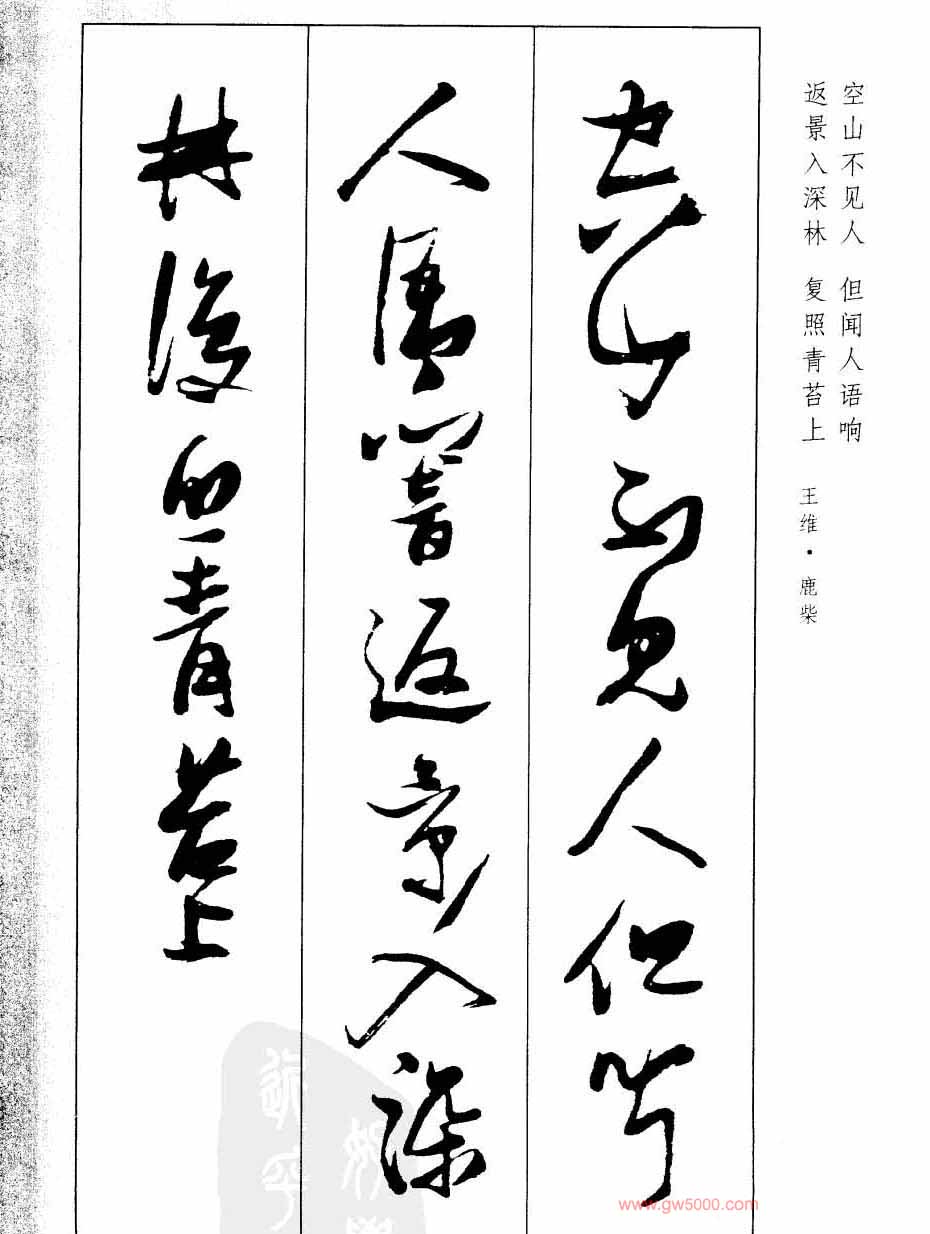 空山不见人 但闻人语响
返景入深林 复照青苔上
王维·鹿柴
空山不見人但聞
人語響返景入深
林復照青苔上
www.gw5000.com